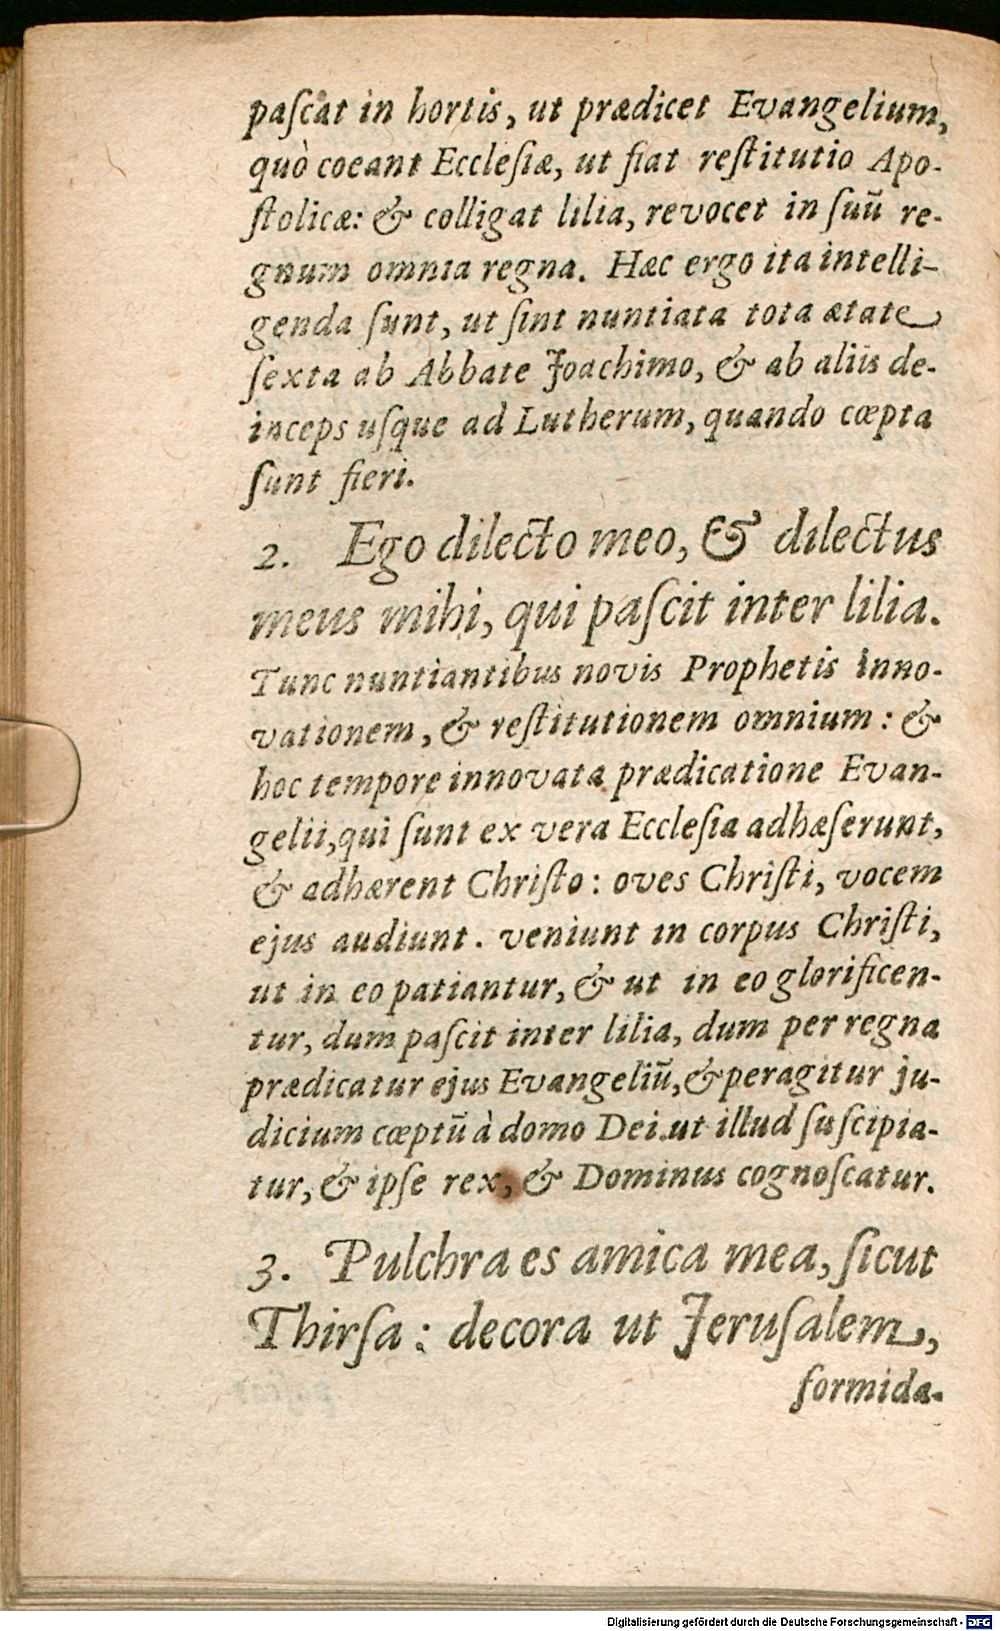 paſcat in hortis, ut prædicet Evangelium,
quò coeant Eccleſiæ, ut fiat reſtitutio Apo-
ſtolicæ: & colligat lilia, revocet in ſuū re-
gnum omnia regna. Hæc ergo ita intelli-
genda ſunt, ut ſint nuntiata tota ætate
ſexta ab Abbate Joachimo, & ab aliis de-
inceps uſque ad Lutherum, quando cœpta
ſunt fieri.
2. Ego dilecto meo, & dilectus
meus mihi, qui paſcit inter lilia.
Tunc nuntiantibus novis Prophetis inno-
vationem, & reſtitutionem omnium: &
hoc tempore innovata prædicatione Evan-
gelii, qui ſunt ex vera Eccleſia adhæſerunt,
& adhærent Chriſto: oves Chriſti, vocem
ejus audiunt. veniunt in corpus Chriſti,
ut in eo patiantur, & ut in eo glorificen-
tur, dum paſcit inter lilia, dum per regna
prædicatur ejus Evangeliū, & peragitur ju-
dicium cœptū à domo Dei. ut illud ſuſcipia-
tur, & ipſe rex, & Dominus cognoſcatur.
3. Pulchra es amica mea, ſicut
Thirſa: decora ut Jeruſalem,
formida-
Digitalisierung gefördert durch die Deutsche Forschungsgemeinschaft - DFG